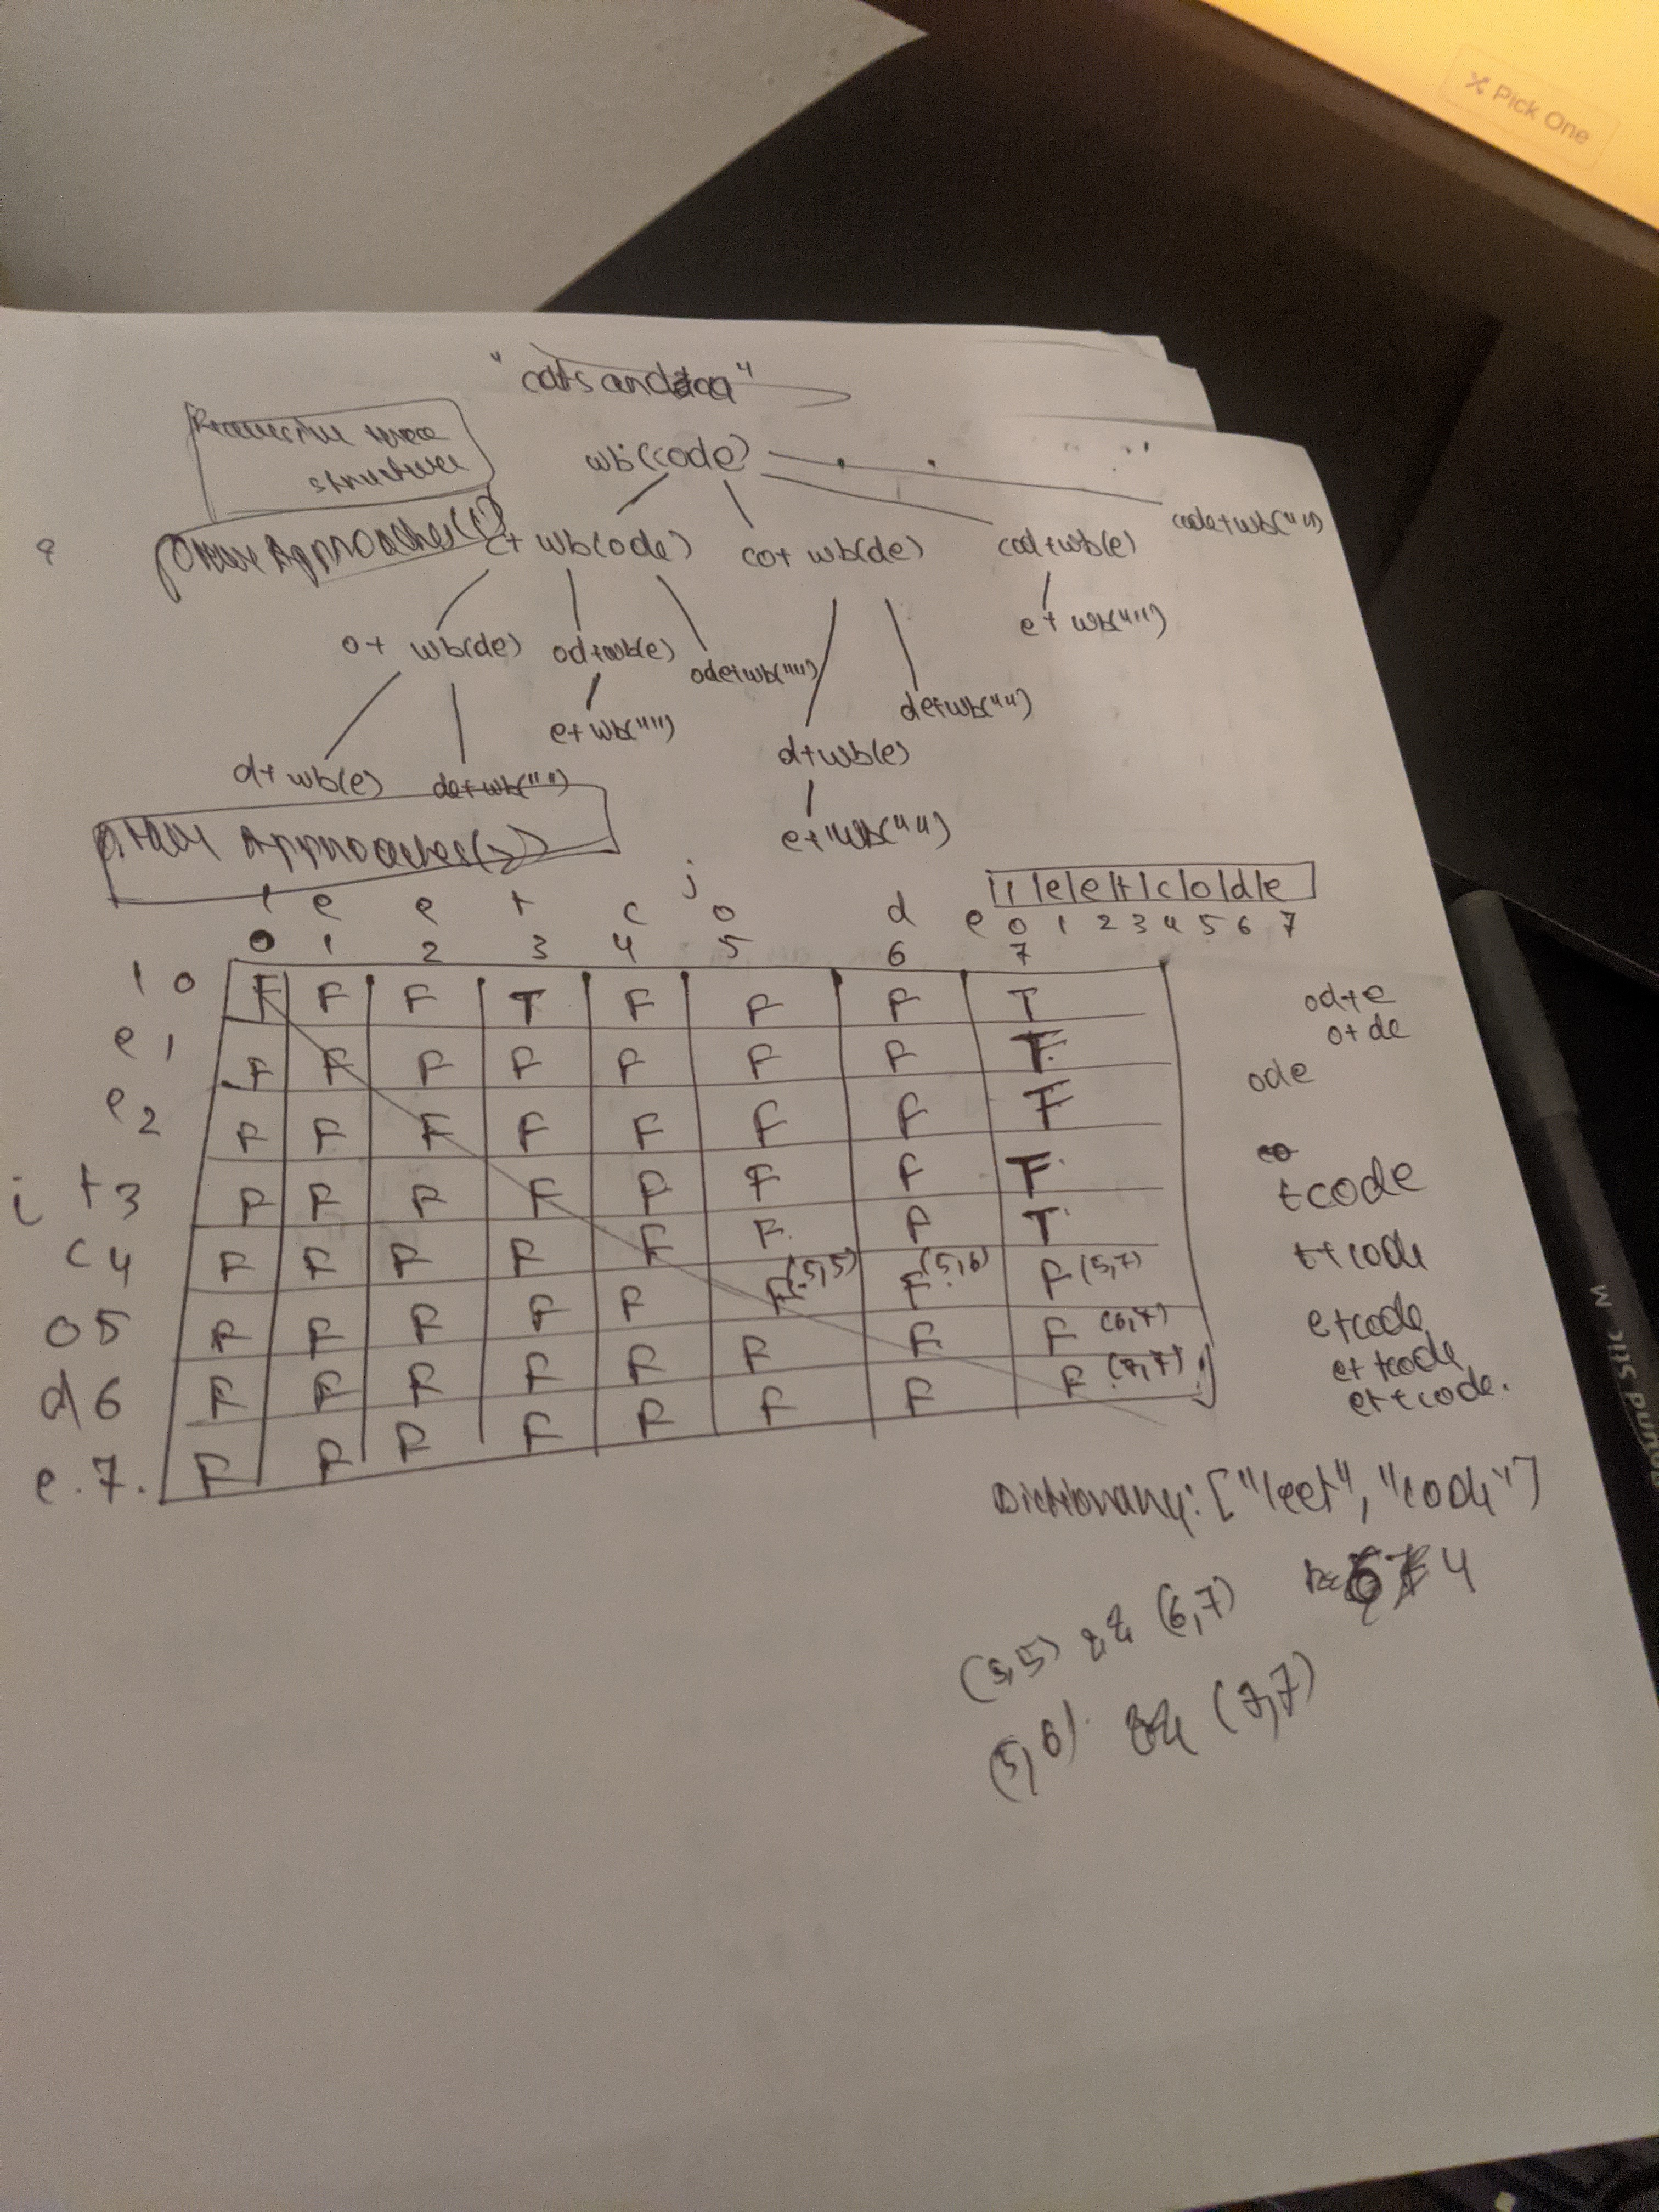 Pick One
"catsand
Recursive tree
structure
wb(code)
Other Approaches(1)
c+ wb(ode) co+ wb(de) cod+wb(e) code+wb("")
o+ wb(de) od+wb(e) ode+wb("") e+ wb("")
e+wb("") de+wb("")
d+ wb(e) de+wb("") d+wb(e)
e+wb("")
Other Approaches(2)
j
l e e t c o d e
l|e|e|t|c|o|d|e
0 1 2 3 4 5 6 7
0 1 2 3 4 5 6 7
l 0 F F F T F F F T
e 1 F F F F F F F F
e 2 F F F F F F F F
i t 3 F F F F F F F F
c 4 F F F F F F F T
o 5 F F F F F F(5,5) F(5,6) F(5,7)
d 6 F F F F F F F F(6,7)
e. 7. F F F F F F F F(7,7)
od+e
o+de
ode
tcode
t+code
etcode
e+tcode
et+code.
Dictionary: ["leet", "code"]
(5,5) && (6,7)
4
(5,6) && (7,7)